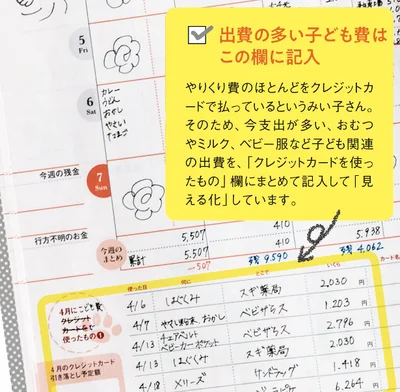 出費の多い子ども費は
この欄に記入
やりくり費のほとんどをクレジットカ
ードで払っているというみい子さん。
そのため、今支出が多い、おむつ
やミルク、ベビー服など子ども関連
の出費を、「クレジットカードを使っ
たもの」欄にまとめて記入して「見
える化」しています。
5
Fri
6
Sat
カレー
うどん
おかし
やさい
たまご
今週の残金
7
Sun
行方不明のお金
5,507 410 5,938
今週の
まとめ
累計 5,507 410
-507 残 9,590 残 4,062
使った日 何に どこで いくら カード名
4月に
クレジット
カードを
使ったもの 1
4/6 はぐくみ スギ薬局 2,030 円
4/7 おかし ベビザらス 1,203 円
4/13 チェアベルト
ベビーカー ポケット ベビザらス 2,796 円
4/13 はぐくみ スギ薬局 2,030 円
4月のクレジットカード
引き落とし予定額
4/18 メリーズ 1,418 円
6,264 円